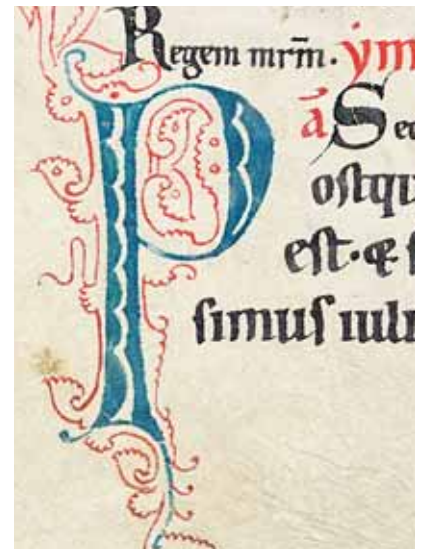 Regem mr̄m. ẏm
ā Sec
Poſtqu
eſt · & ſ
ſimuſ iuli